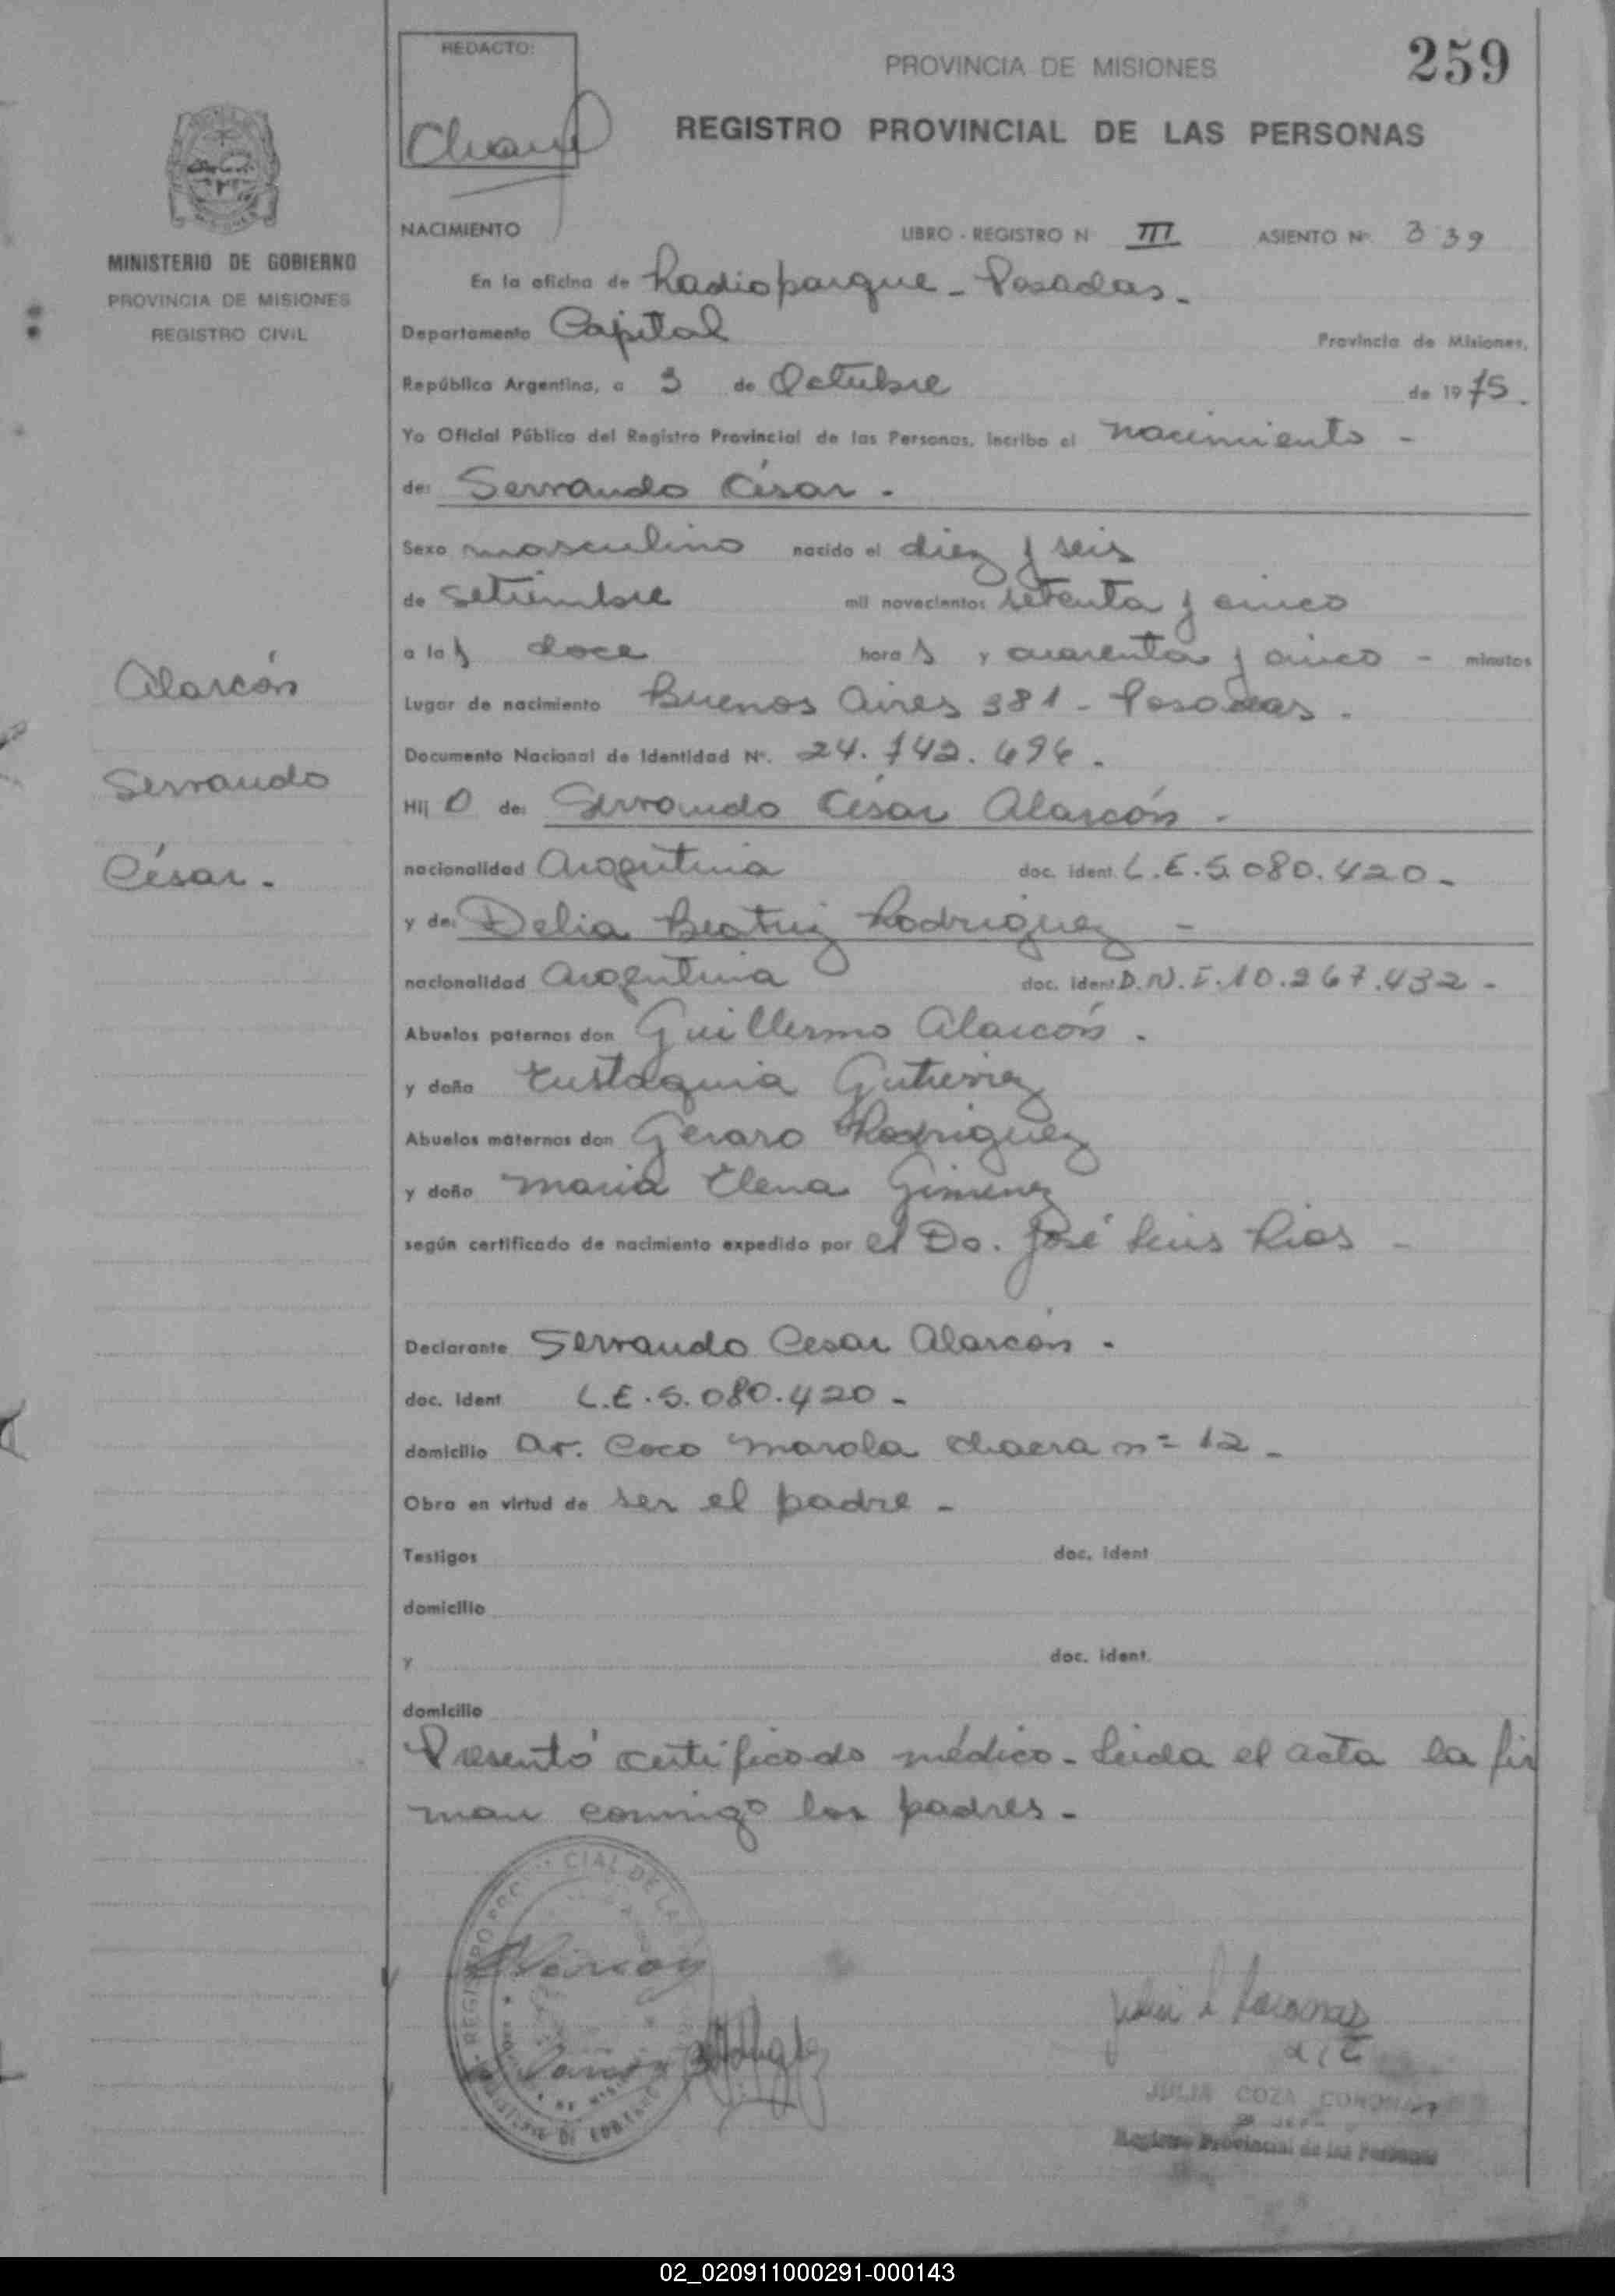 REDACTO:
PROVINCIA DE MISIONES
259
REGISTRO PROVINCIAL DE LAS PERSONAS
MINISTERIO DE GOBIERNO
PROVINCIA DE MISIONES
REGISTRO CIVIL
NACIMIENTO LIBRO - REGISTRO N III ASIENTO Nº 339
En la oficina de Radioparque - Posadas -
Departamento Capital Provincia de Misiones,
República Argentina, a 3 de Octubre de 1975.
Yo Oficial Público del Registro Provincial de las Personas, incribo el nacimiento -
de: Servando César -
Sexo masculino nacido el diez y seis
de setiembre mil novecientos setenta y cinco
a las doce horas y cuarenta y cinco - minutos
Lugar de nacimiento Buenos Aires 381 - Posadas -
Documento Nacional de Identidad Nº. 24.742.696 -
Hijo de: Servando César Alarcón -
nacionalidad Argentina doc. ident. L.E. 5.080.420 -
y de: Delia Beatriz Rodriguez -
nacionalidad Argentina doc. ident D.N.I. 10.267.432 -
Abuelos paternos don Guillermo Alarcón -
y doña Eustaquia Gutierrez
Abuelos maternos don Geraro Rodriguez
y doña Maria Elena Gimenez
según certificado de nacimiento expedido por el Do. José Luis Rios -
Declarante Servando Cesar Alarcón -
doc. ident L.E. 5.080.420 -
domicilio Av. Coco Marola chacra nº 12 -
Obra en virtud de ser el padre -
Testigos doc. ident
domicilio
y doc. ident.
domicilio
Presentó certificado médico - Leida el acta la fir
man conmigo los padres -
Alarcón
Servando
César -
JULIA COZA CORONAS
Registro Provincial de las Personas
02_020911000291-000143